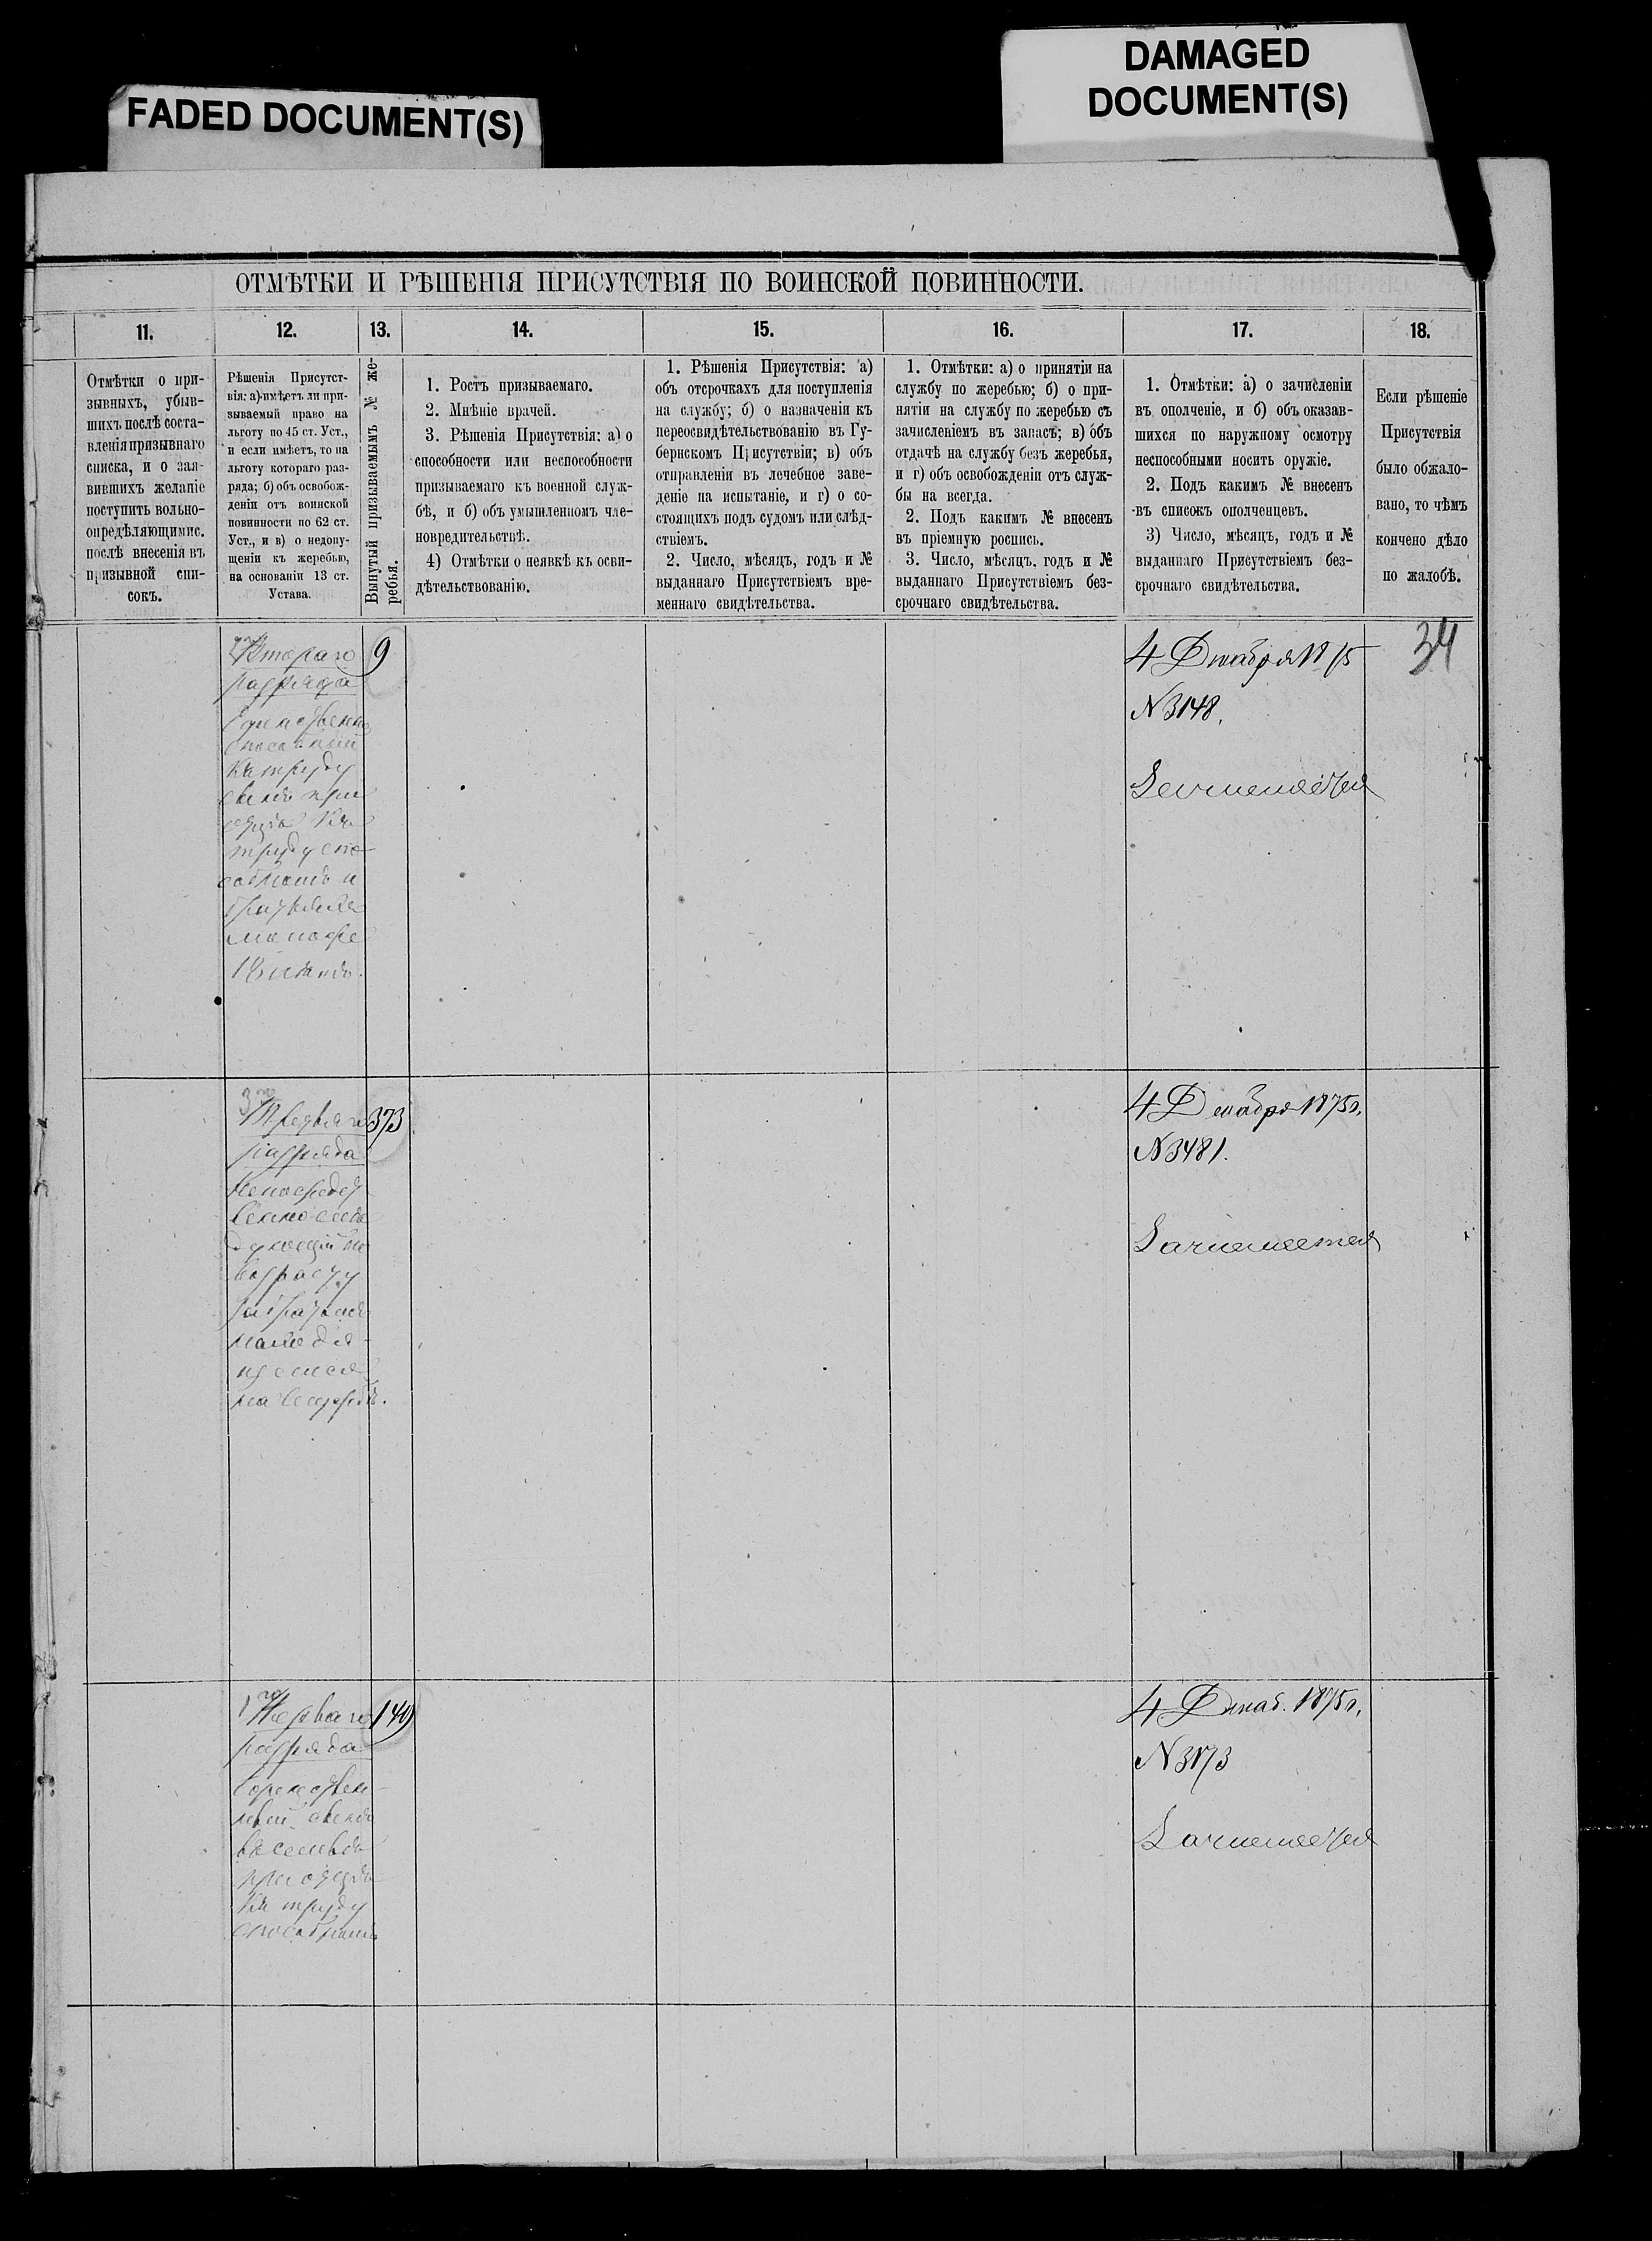 FADED DOCUMENT(S)
DAMAGED
DOCUMENT(S)
ОТМѢТКИ И РѢШЕНІЯ ПРИСУТСТВІЯ ПО ВОИНСКОЙ ПОВИННОСТИ.
11.
12.
13.
14.
15.
16.
17.
18.
Отмѣтки о при-
зывныхъ, убыв-
шихъ послѣ соста-
вленія призывнаго
списка, и о зая-
вившихъ желаніе
поступить вольно-
опредѣляющимис.
послѣ внесенія въ
призывной спи-
сокъ.
Рѣшенія Присутст-
вія: а) имѣетъ ли при-
зываемый право на
льготу по 45 ст. Уст.,
и если имѣетъ, то на
льготу котораго раз-
ряда; б) объ освобож-
деніи отъ воинской
повинности по 62 ст.
Уст., и в) о недопу-
щеніи къ жеребью,
на основаніи 13 ст.
Устава.
Вынутый призываемымъ № же-
ребья.
1. Ростъ призываемаго.
2. Мнѣніе врачей.
3. Рѣшенія Присутствія: а) о
способности или неспособности
призываемаго къ военной служ-
бѣ, и б) объ умышленномъ чле-
новредительствѣ.
4) Отмѣтки о неявкѣ къ осви-
дѣтельствованію.
1. Рѣшенія Присутствія: а)
объ отсрочкахъ для поступленія
на службу; б) о назначеніи къ
переосвидѣтельствованію въ Гу-
бернскомъ Присутствіи; в) объ
отправленіи въ лечебное заве-
деніе на испытаніе, и г) о со-
стоящихъ подъ судомъ или слѣд-
ствіемъ.
2. Число, мѣсяцъ, годъ и №
выданнаго Присутствіемъ вре-
меннаго свидѣтельства.
1. Отмѣтки: а) о принятіи на
службу по жеребью; б) о при-
нятіи на службу по жеребью съ
зачисленіемъ въ запасъ; в) объ
отдачѣ на службу безъ жеребья,
и г) объ освобожденіи отъ служ-
бы на всегда.
2. Подъ какимъ № внесенъ
въ пріемную роспись.
3. Число, мѣсяцъ, годъ и №
выданнаго Присутствіемъ без-
срочнаго свидѣтельства.
1. Отмѣтки: а) о зачисленіи
въ ополченіе, и б) объ оказав-
шихся по наружному осмотру
неспособными носить оружіе.
2. Подъ какимъ № внесенъ
въ списокъ ополченцевъ.
3) Число, мѣсяцъ, годъ и №
выданнаго Присутствіемъ без-
срочнаго свидѣтельства.
Если рѣшеніе
Присутствія
было обжало-
вано, то чѣмъ
кончено дѣло
по жалобѣ.
34
Втораго
разряда
Единственно
способный
къ труду
сынъ при
отцѣ къ
труду спо-
собномъ и
9
4 Декабря 1875
N 3148.
3го
Третьяго
разряда
непосредст
венно слѣ
дующій по
возрасту
за братомъ
находя-
щемся
на службѣ.
373
4 Декабря 1875г.
N 3481.
1го
Перваго
разряда
Единствен-
ный сынъ
въ семьѣ
при отцѣ
къ труду
способномъ
149
4 Декаб. 1875г.
N 3173